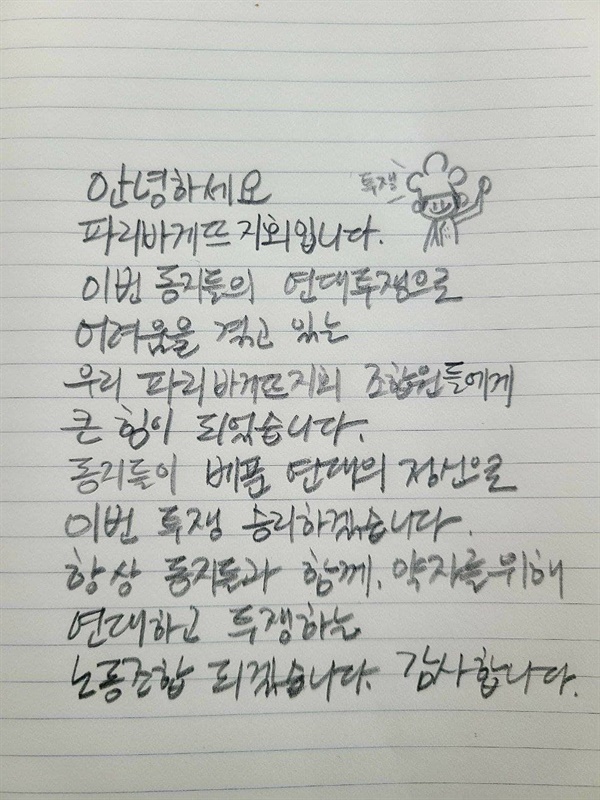 안녕하세요
투쟁
파리바게뜨지회입니다.
이번 동지들의 연대투쟁으로
어려움을 겪고 있는
우리 파리바게뜨지회 조합원들에게
큰 힘이 되었습니다.
동지들이 베푼 연대의 정신으로
이번 투쟁 승리하겠습니다.
항상 동지들과 함께, 약자를 위해
연대하고 투쟁하는
노동조합 되겠습니다. 감사합니다.